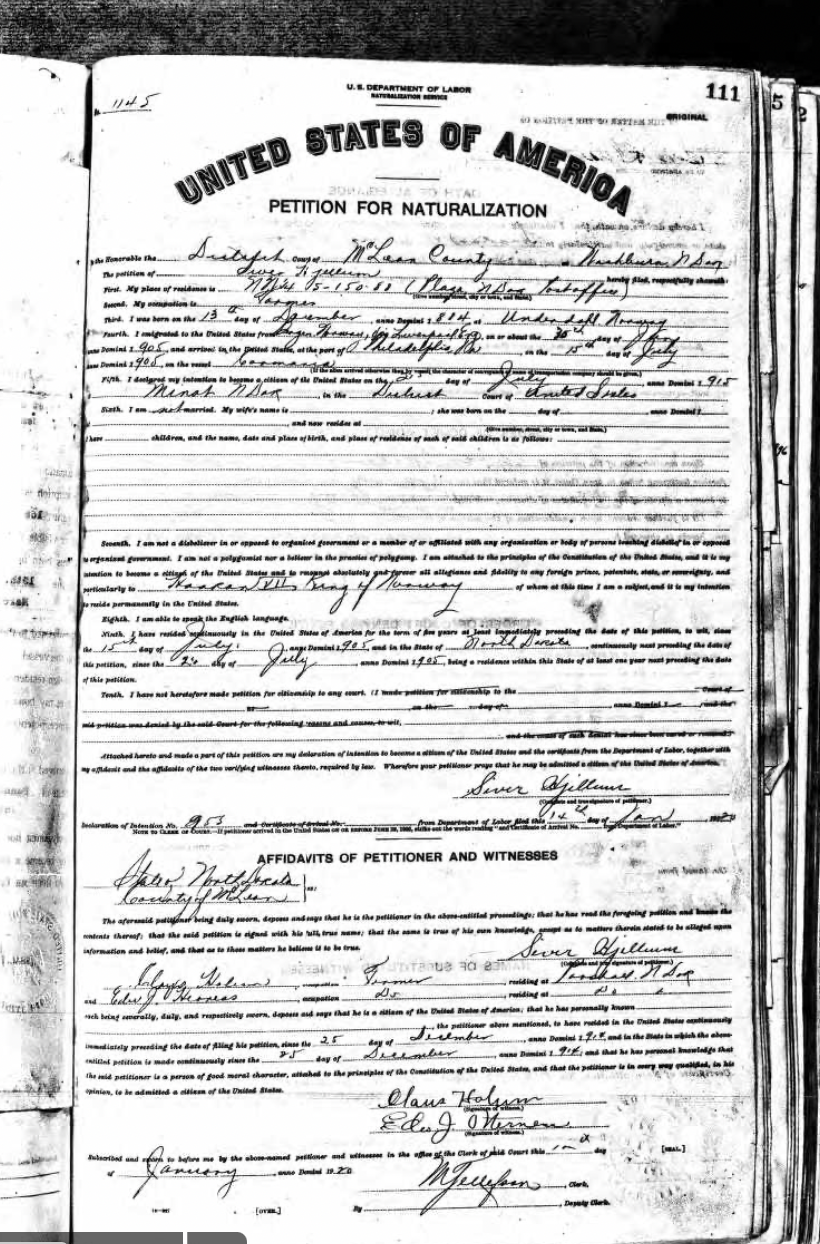 U. S. DEPARTMENT OF LABOR
NATURALIZATION SERVICE
111
1145
ORIGINAL
UNITED STATES OF AMERICA
PETITION FOR NATURALIZATION
the Honorable the District Court of McLean County at Washburn N Dak
The petition of Siver Hjellum hereby filed, respectfully sheweth:
First. My place of residence is 5-150-88 (Plaza N Dak Postoffice)
(Give number, street, city or town, and State.)
Second. My occupation is Farmer
Third. I was born on the 13th day of December, anno Domini 1884, at Norway
Fourth. I emigrated to the United States from Norway, Liverpool Eng, on or about the day of
anno Domini 1905, and arrived in the United States, at the port of Philadelphia, Pa, on the 15th day of July
anno Domini 1905, on the vessel
(If the alien arrived otherwise than by vessel, the character of conveyance or name of transportation company should be given.)
Fifth. I declared my intention to become a citizen of the United States on the 2 day of July, anno Domini 1915
Minot N Dak, in the District Court of United States
Sixth. I am not married. My wife's name is ; she was born on the day of , anno Domini 1
, and now resides at
(Give number, street, city or town, and State.)
I have children, and the name, date and place of birth, and place of residence of each of said children is as follows:
Seventh. I am not a disbeliever in or opposed to organized government or a member of or affiliated with any organization or body of persons teaching disbelief in or opposed
to organized government. I am not a polygamist nor a believer in the practice of polygamy. I am attached to the principles of the Constitution of the United States, and it is my
intention to become a citizen of the United States and to renounce absolutely and forever all allegiance and fidelity to any foreign prince, potentate, state, or sovereignty, and
particularly to Haakon VII King of Norway of whom at this time I am a subject, and it is my intention
to reside permanently in the United States.
Eighth. I am able to speak the English language.
Ninth. I have resided continuously in the United States of America for the term of five years at least immediately preceding the date of this petition, to wit, since
the 15th day of July, anno Domini 1905, and in the State of North Dakota, continuously next preceding the date
of this petition, since the day of July, anno Domini 1905, being a residence within this State of at least one year next preceding the date
of this petition.
Tenth. I have not heretofore made petition for citizenship to any court. (I made petition for citizenship to the Court of
at on the day of , anno Domini 1 , and the
said petition was denied by the said Court for the following reasons and causes, to wit,
and the cause of such denial has since been cured or removed.)
Attached hereto and made a part of this petition are my declaration of intention to become a citizen of the United States and the certificate from the Department of Labor, together with
my affidavit and the affidavits of the two verifying witnesses thereto, required by law. Wherefore your petitioner prays that he may be admitted a citizen of the United States of America.
Siver Hjellum
(Complete and true signature of petitioner.)
Declaration of Intention No. 953 and Certificate of Arrival No. from Department of Labor filed this 14th day of Jan, 1920
NOTE TO CLERK OF COURT.—If petitioner arrived in the United States ON OR BEFORE JUNE 29, 1906, strike out the words reading "and Certificate of Arrival No. from Department of Labor."
AFFIDAVITS OF PETITIONER AND WITNESSES
State of North Dakota
County of McLean ss:
The aforesaid petitioner being duly sworn, deposes and says that he is the petitioner in the above-entitled proceedings; that he has read the foregoing petition and knows the
contents thereof; that the said petition is signed with his full, true name; that the same is true of his own knowledge, except as to matters therein stated to be alleged upon
information and belief, and that as to those matters he believes it to be true.
Siver Hjellum
(Complete and true signature of petitioner.)
Claus Holum, occupation Farmer, residing at Parshall, N Dak
and J. , occupation Do, residing at Do
each being severally, duly, and respectively sworn, deposes and says that he is a citizen of the United States of America; that he has personally known
, the petitioner above mentioned, to have resided in the United States continuously
immediately preceding the date of filing his petition, since the 25 day of December, anno Domini 1914, and in the State in which the above-
entitled petition is made continuously since the 25 day of December, anno Domini 1914, and that he has personal knowledge that
the said petitioner is a person of good moral character, attached to the principles of the Constitution of the United States, and that the petitioner is in every way qualified, in his
opinion, to be admitted a citizen of the United States.
Claus Holum
(Signature of witness.)
J.
(Signature of witness.)
Subscribed and sworn to before me by the above-named petitioner and witnesses in the office of the Clerk of said Court this day [SEAL.]
of January, anno Domini 1920
, Clerk.
By , Deputy Clerk.
[OVER.]